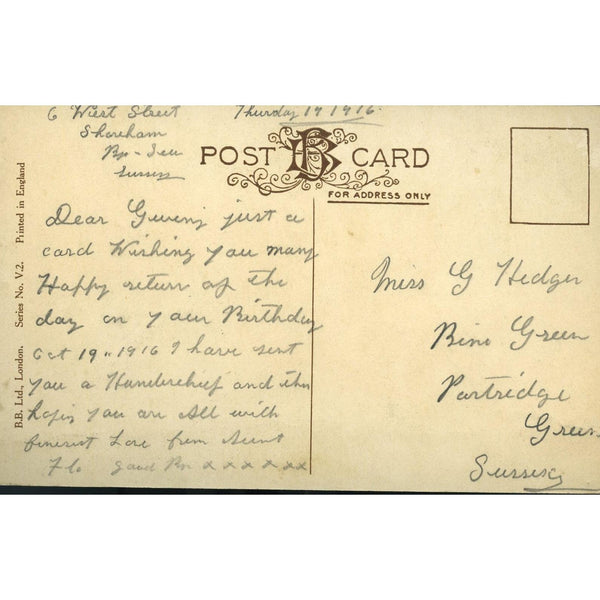 6 West Street
Thursday 19 1916.
Shoreham
By-Sea
Sussex
POST CARD
FOR ADDRESS ONLY
B.B. Ltd., London. Series No. V.2. Printed in England
Dear just a
card Wishing you many
Happy return of the
day on your Birthday
Oct 19.. 1916 I have sent
you a Handerchief and
you are All with
Love from Aunt
Flo good x x x x x x
Miss G Hedger
Green
Partridge
Green
Sussex